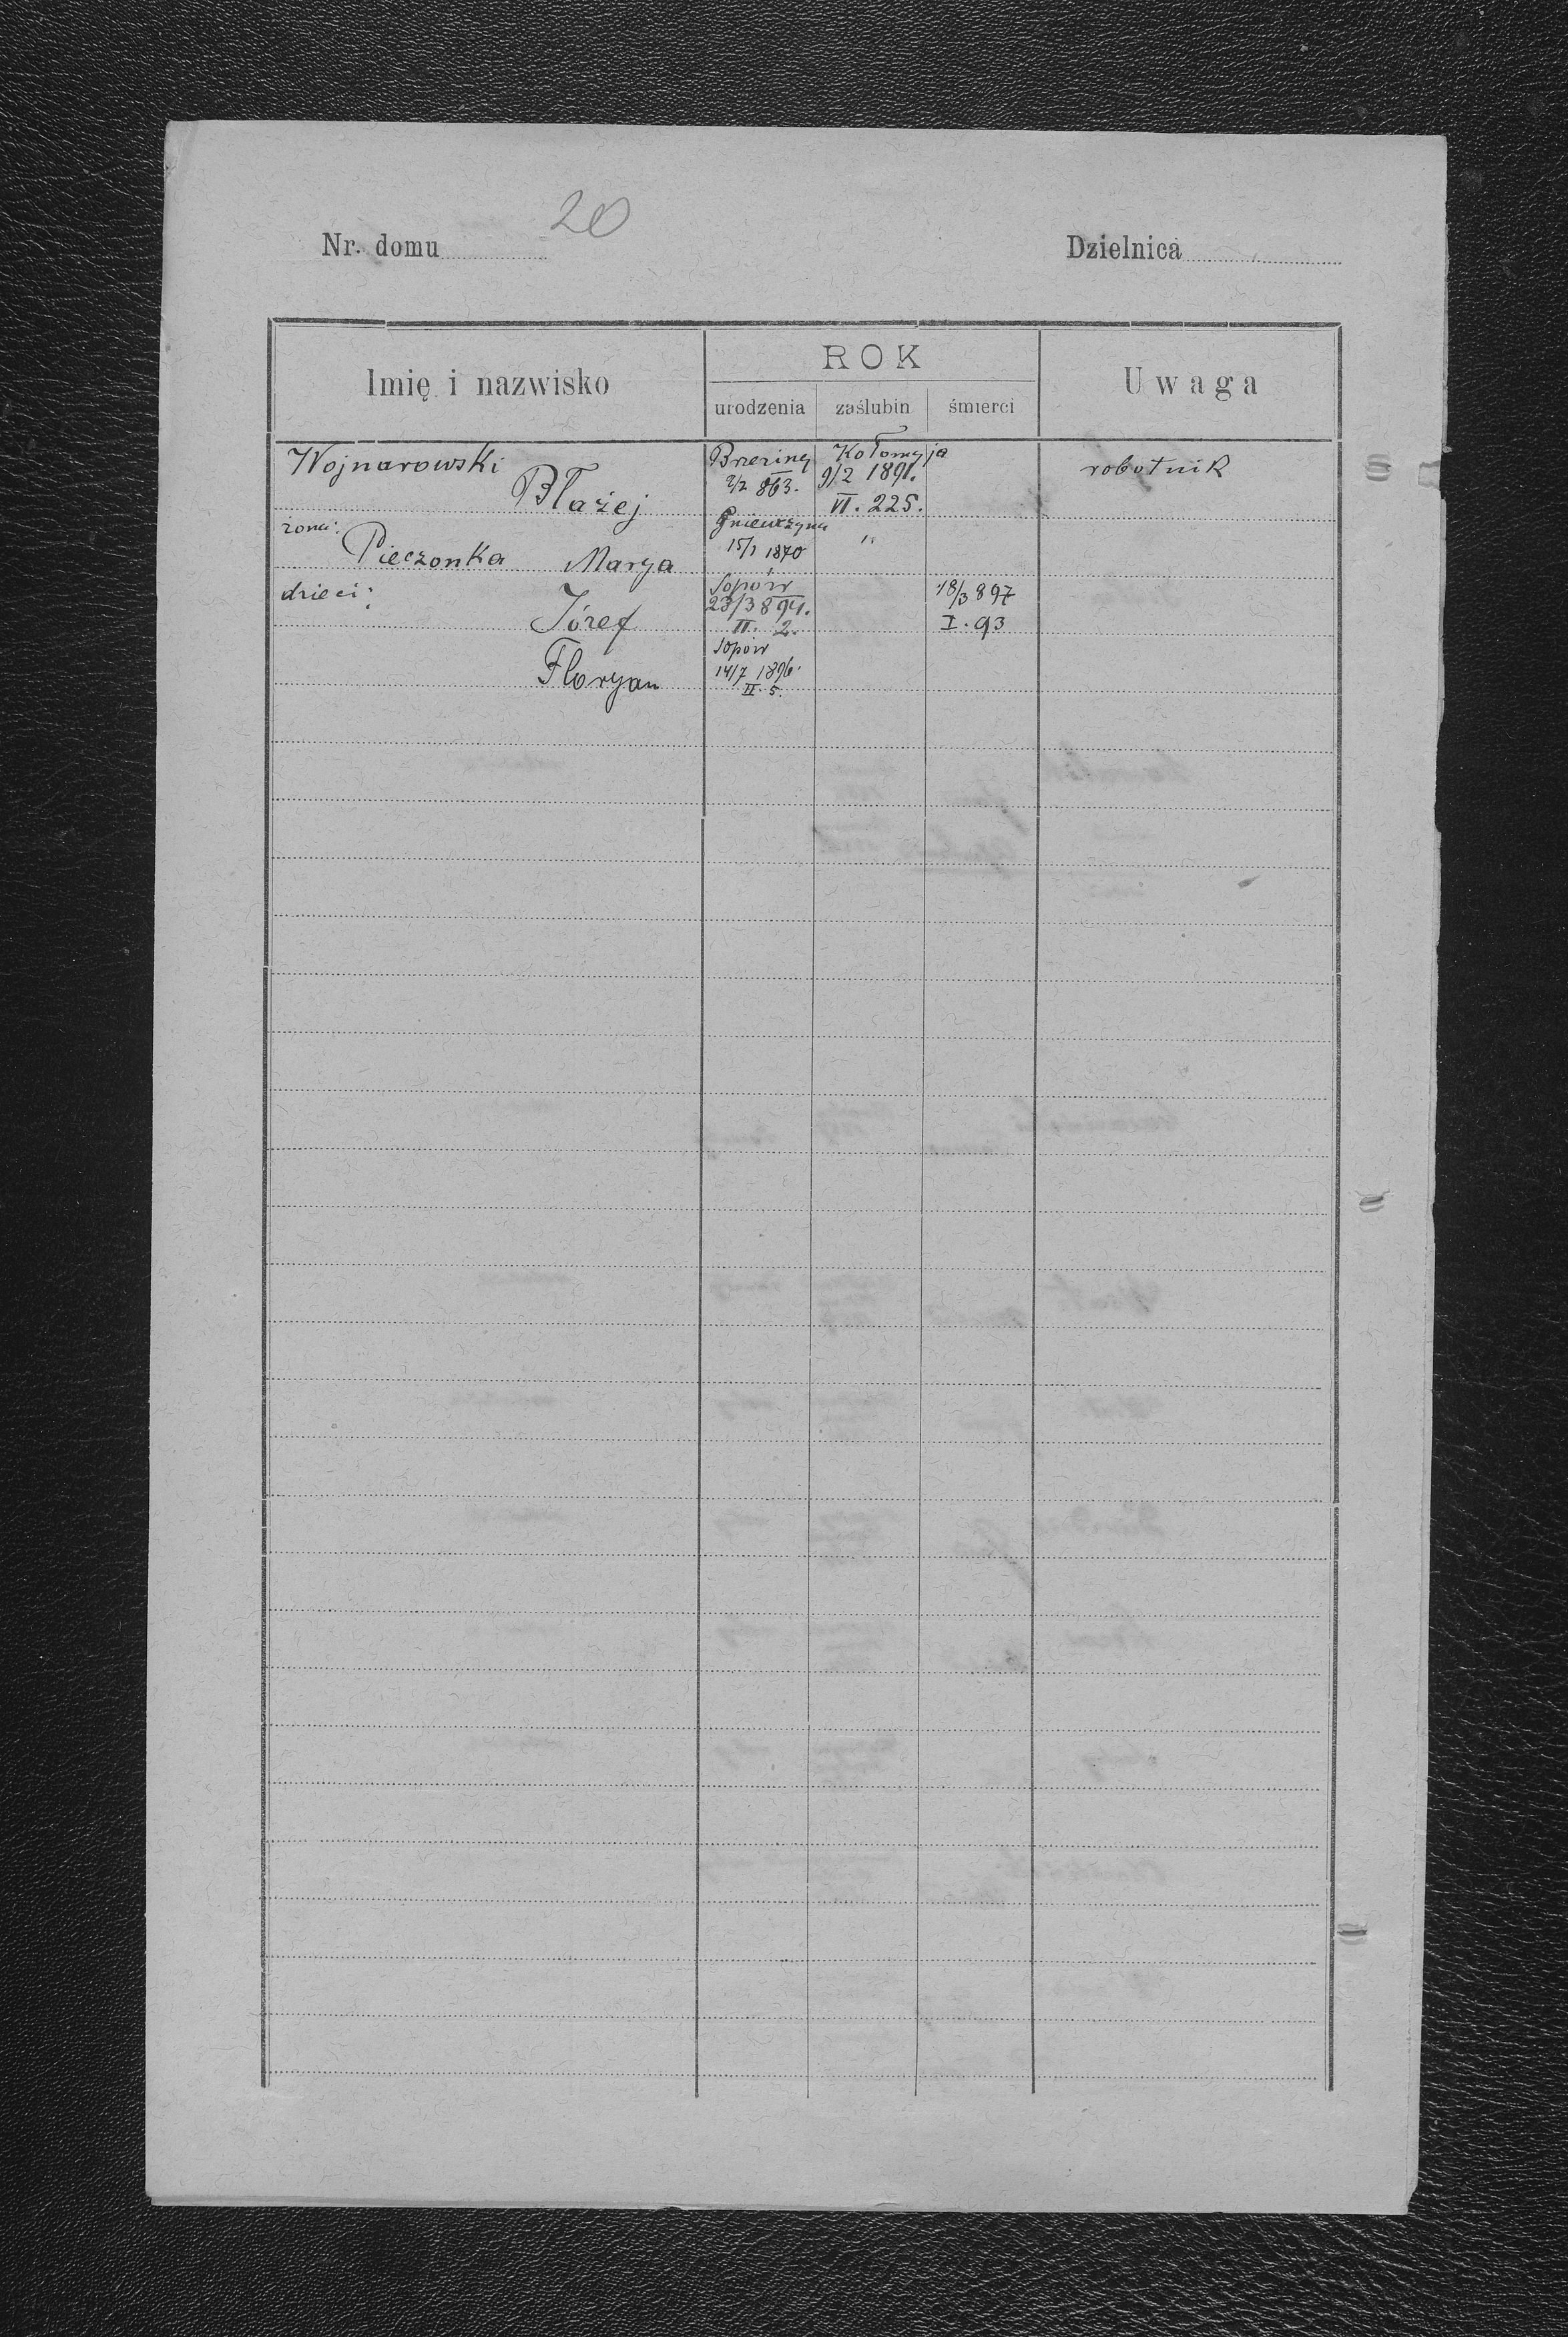 20
Nr. domu
Dzielnica
Imię i nazwisko
ROK
urodzenia
zaślubin
śmierci
Uwaga
Wojnarowski
Błażej
Brzeziny
2/2 863.
Kołomyja
9/2 1891.
VI. 225.
robotnik
żona:
Pieczonka Marya
Gniewczyna
15/1 1870
"
dzieci:
Józef
Sopów
23/3 894.
II. 2.
18/3 897
I. 93
Floryan
Sopów
14/7 1896.
II. 5.